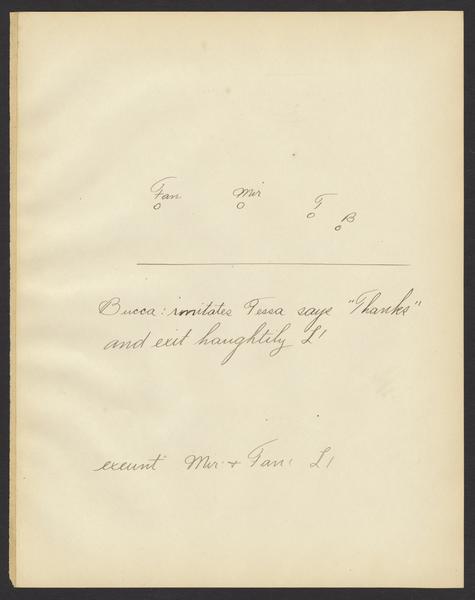 Fan Mir T B
Bucca: imitates Tessa says "Thanks"
and exit haughtily L!
exeunt Mir: + Fan: L!